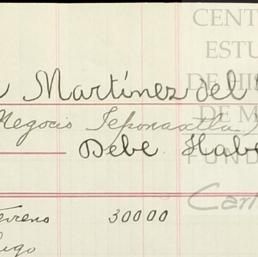 CENT
ESTU
DE HI
DE M
FUND
Car
Martínez del
Negocio Teponaxtla
Debe Habe
Terreno 30000